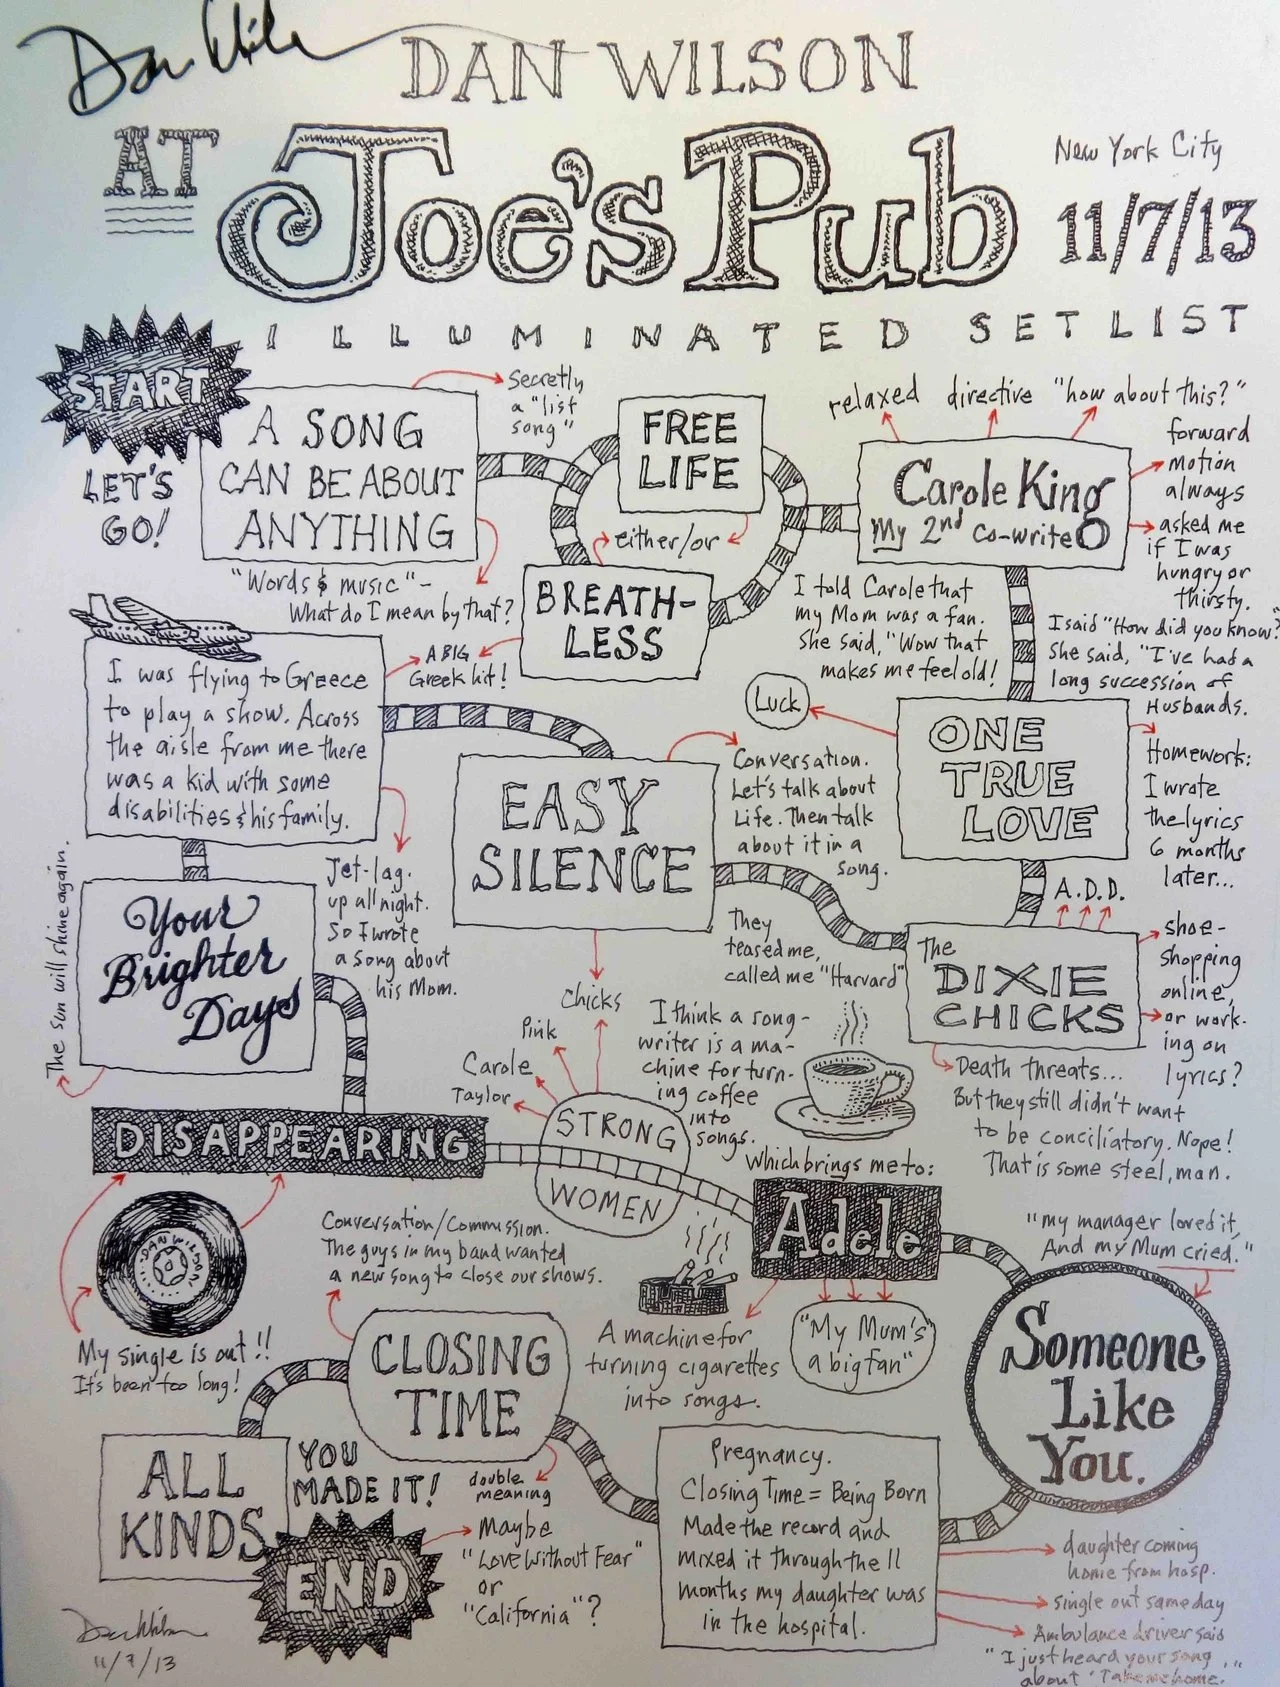 Dan Wilson
DAN WILSON
AT
Joe's Pub
New York City
11/7/13
ILLUMINATED SETLIST
START
LET'S
GO!
A SONG
CAN BE ABOUT
ANYTHING
Secretly
a "list
song"
"Words & music"-
What do I mean by that?
FREE
LIFE
either/or
BREATH-
LESS
A BIG
Greek hit!
relaxed
directive
"how about this?"
forward
motion
always
asked me
if I was
hungry or
thirsty.
Carole King
My 2nd Co-write
I told Carole that
my Mom was a fan.
She said, "Wow that
makes me feel old!
I said "How did you know?
She said, "I've had a
long succession of
Husbands.
I was flying to Greece
to play a show. Across
the aisle from me there
was a kid with some
disabilities & his family.
Jet-lag.
up all night.
So I wrote
a song about
his Mom.
Luck
ONE
TRUE
LOVE
Homework:
I wrote
the lyrics
6 months
later...
EASY
SILENCE
Conversation.
Let's talk about
Life. Then talk
about it in a
song.
A.D.D.
The
DIXIE
CHICKS
shoe-
shopping
online,
or work-
ing on
lyrics?
They
teased me,
called me "Harvard"
Death threats...
But they still didn't want
to be conciliatory. Nope!
That is some steel, man.
Your
Brighter
Days
The sun will shine again.
Chicks
Pink
Carole
Taylor
STRONG
WOMEN
I think a song-
writer is a ma-
chine for turn-
ing coffee
into
songs.
Which brings me to:
DISAPPEARING
DAN WILSON
My single is out!!
It's been too long!
Adele
A machine for
turning cigarettes
into songs.
"My Mum's
a big fan"
"my manager loved it,
And my Mum cried."
Someone
Like
You.
Conversation/Commission.
The guys in my band wanted
a new song to close our shows.
CLOSING
TIME
double
meaning
Pregnancy.
Closing Time = Being Born
Made the record and
mixed it through the 11
months my daughter was
in the hospital.
daughter coming
home from hosp.
single out same day
Ambulance driver said
"I just heard your song
about 'Take me home.'"
ALL
KINDS
YOU
MADE IT!
END
Maybe
"Love Without Fear"
or
"California"?
Dan Wilson
11/7/13